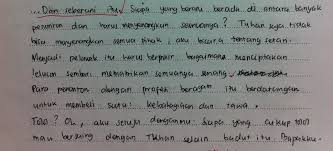 ... Dan seberani itu. Siapa yang berani berada di antara banyak
penonton dan harus menyenangkan semuanya? Tuhan saja tidak
bisa menyenangkan semua pihak, aku bicara tentang seran.
Menjadi pelawak itu harus berpikir bagaimana menciptakan
lelucon sembari memikirkan semuanya senang
Para penonton dengan projek beragam itu berdatangan
untuk membeli satu: kebahagiaan dan tawa.
Tolol? Oh, aku setuju denganmu. Siapa yang cukup tolol
mau bersaing dengan Tuhan selain badut itu Bapakku.